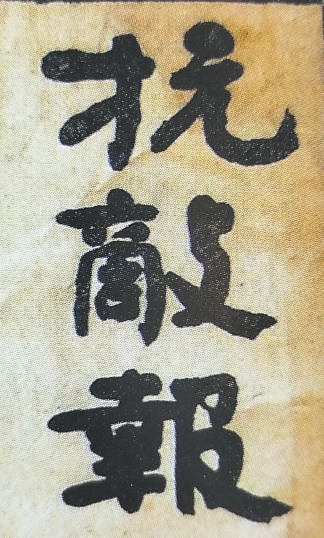 抗敵報